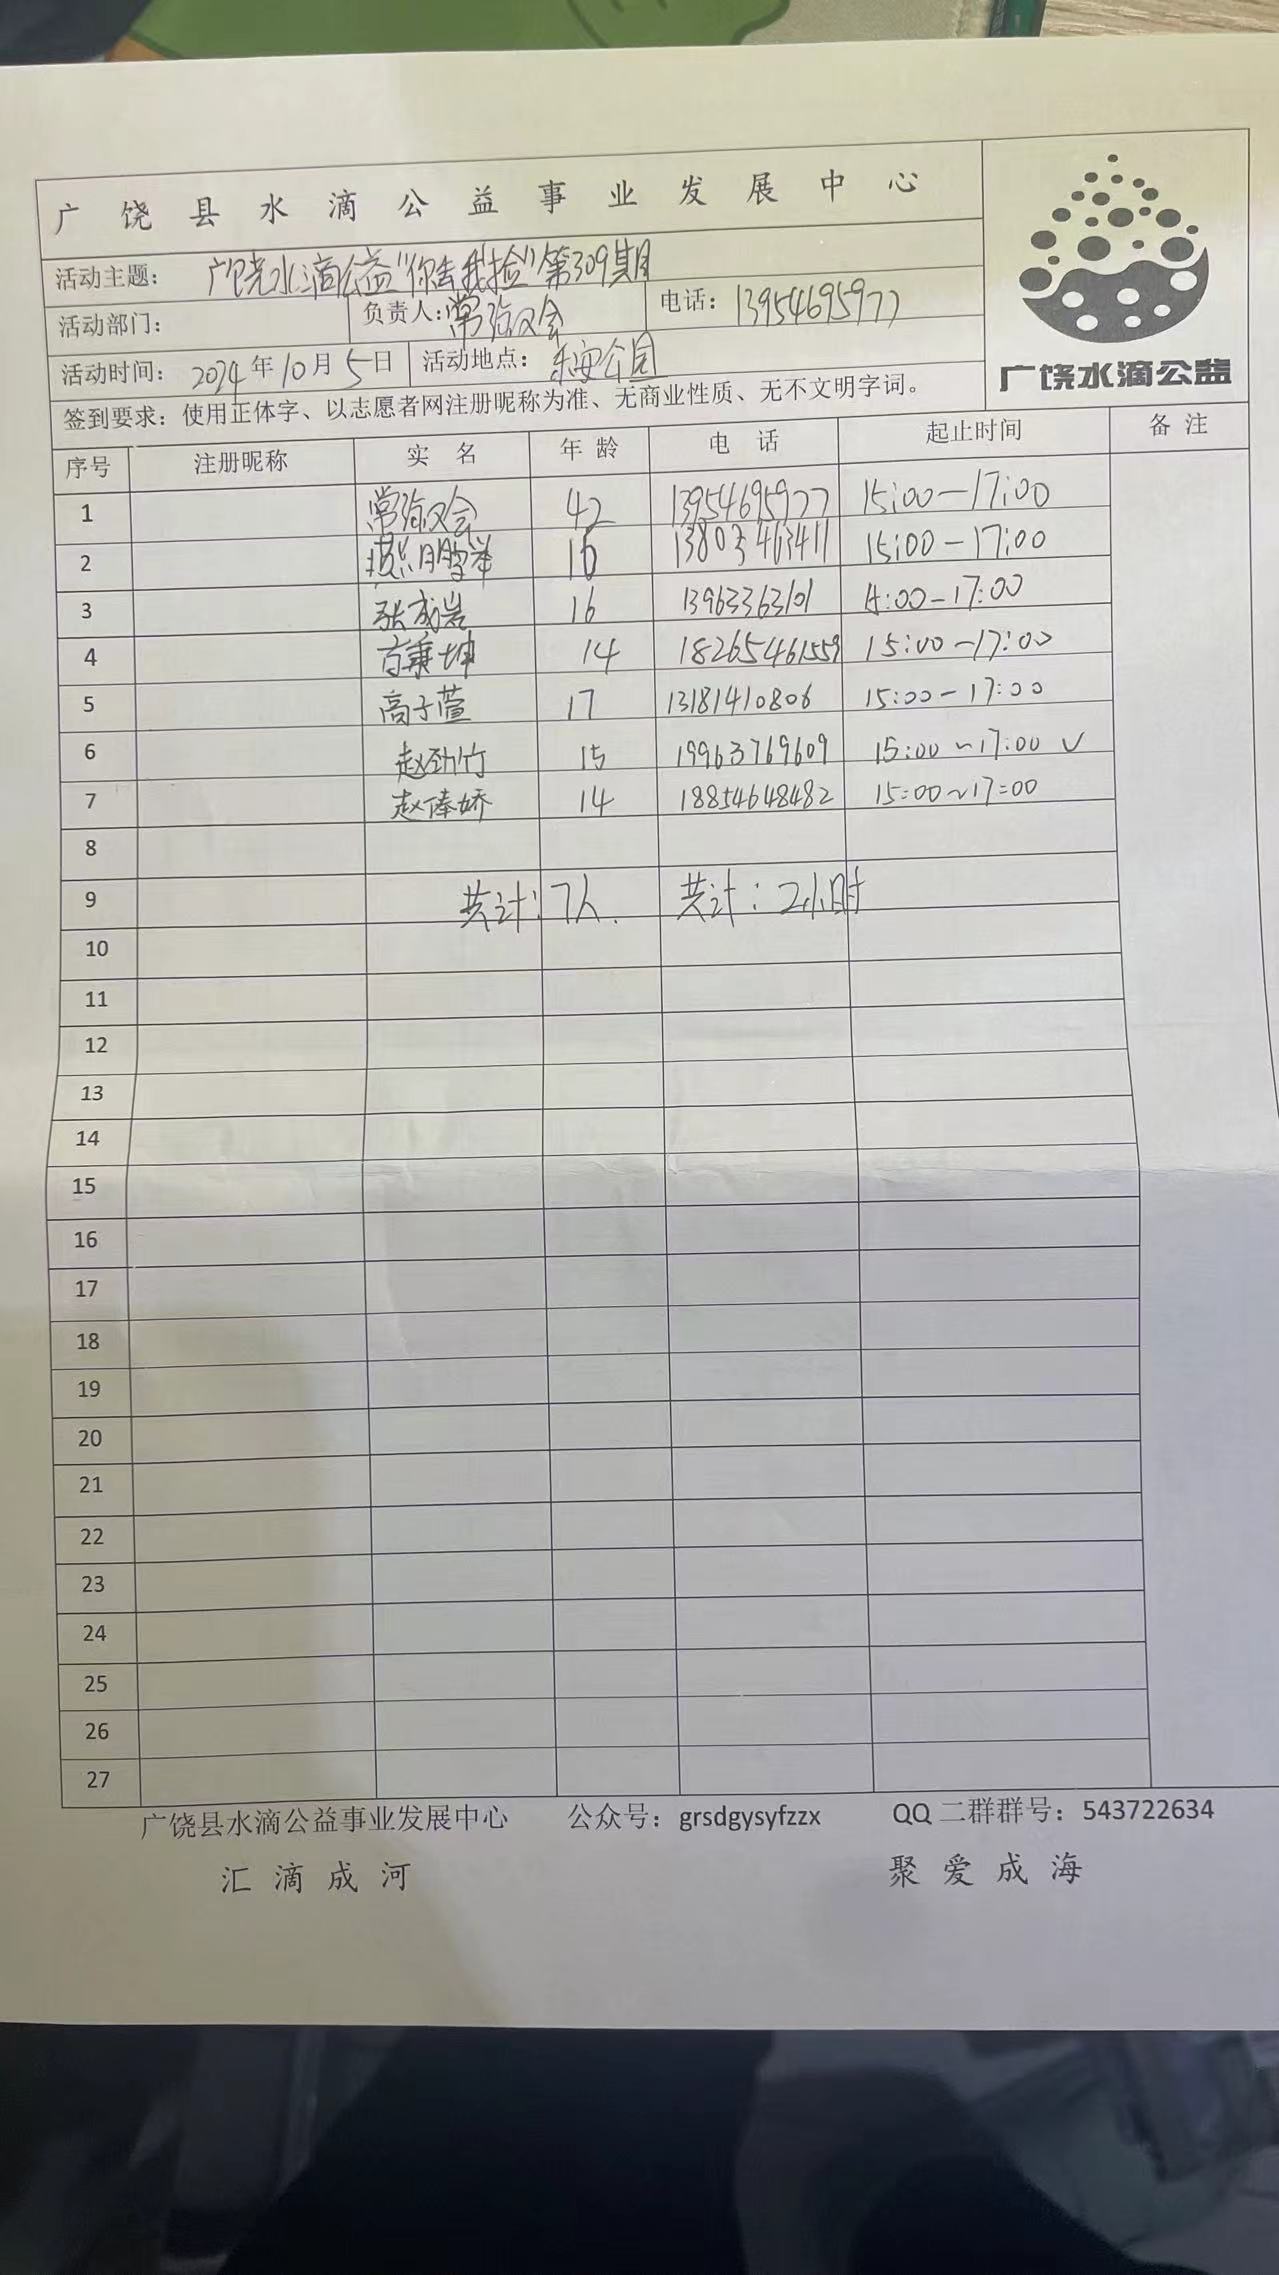 广饶县水滴公益事业发展中心
活动主题： 广饶水滴公益"你丢我捡"第309期
活动部门： 负责人：常 会 电话：13954695977
活动时间： 2024年10月5日 活动地点： 乐安公园
广饶水滴公益
签到要求：使用正体字、以志愿者网注册昵称为准、无商业性质、无不文明字词。
序号 注册昵称 实 名 年 龄 电 话 起止时间 备 注
1 常 会 42 13954695977 15:00-17:00
2 16 13803463411 15:00-17:00
3 张成岩 16 13963363101 :00-17:00
4 秉坤 14 18265461559 15:00-17:00
5 高子萱 17 13181410806 15:00-17:00
6 赵劲竹 15 19963769609 15:00~17:00 ✓
7 赵俸娇 14 18854648482 15:00~17:00
8
9 共计：7人. 共计：2小时
10
11
12
13
14
15
16
17
18
19
20
21
22
23
24
25
26
27
广饶县水滴公益事业发展中心 公众号：grsdgysyfzzx QQ二群群号：543722634
汇滴成河 聚爱成海